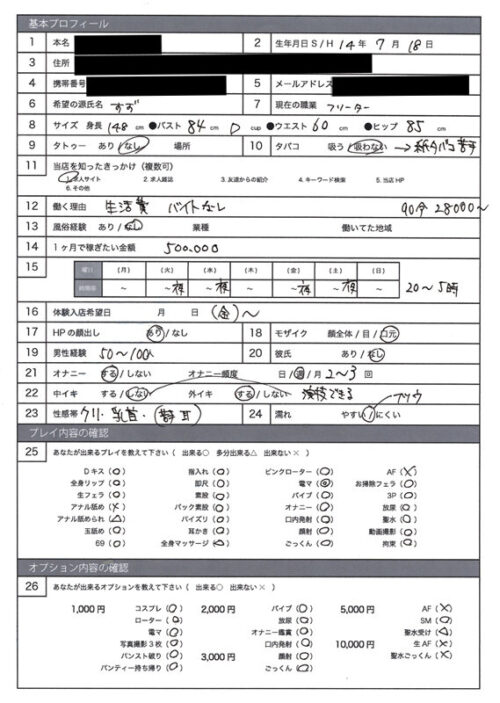 基本プロフィール
1 本名
2 生年月日 S/H 14年 7月 18日
3 住所
4 携帯番号
5 メールアドレス
6 希望の源氏名 すず
7 現在の職業 フリーター
8 サイズ 身長 148 cm ●バスト 84 cm D cup ●ウエスト 60 cm ●ヒップ 85 cm
9 タトゥー あり/なし 場所
10 タバコ 吸う/吸わない →紙タバコ苦手
11 当店を知ったきっかけ(複数可)
1.求人サイト 2.求人雑誌 3.友達からの紹介 4.キーワード検索 5.当店HP
6.その他
12 働く理由 生活費 バイトなし 90分 28000〜
13 風俗経験 あり/なし 業種 働いてた地域
14 1ヶ月で稼ぎたい金額 500.000
15 曜日 (月) (火) (水) (木) (金) (土) (日)
時間帯 ~ ~夜 ~夜 ~ ~夜 ~夜 ~ 20〜5時
16 体験入店希望日 月 日 (金)〜
17 HPの顔出し あり/なし
18 モザイク 顔全体/目/口元
19 男性経験 50〜100人
20 彼氏 あり/なし
21 オナニー する/しない オナニー頻度 日/週/月 2〜3 回
22 中イキ する/しない 外イキ する/しない 演技できる
23 性感帯 クリ・乳首・
24 濡れ やすい/にくい フツウ
プレイ内容の確認
25 あなたが出来るプレイを教えて下さい ( 出来る○ 多分出来る△ 出来ない× )
Dキス(○) 指入れ(○) ピンクローター(○) AF(×)
全身リップ(○) 即尺(○) 電マ(◎) お掃除フェラ(○)
生フェラ(○) 素股(○) バイブ(○) 3P(○)
アナル舐め(×) バック素股(○) オナニー(○) 放尿(○)
アナル舐められ(△) パイズリ(○) 口内発射(○) 聖水(○)
玉舐め(○) 耳かき(○) 顔射(○) 動画撮影(○)
69(○) 全身マッサージ(△) ごっくん(○) 拘束(○)
オプション内容の確認
26 あなたが出来るオプションを教えて下さい ( 出来る○ 出来ない× )
1,000円 コスプレ(○) 2,000円 バイブ(○) 5,000円 AF(×)
ローター(○) 放尿(○) SM(○)
電マ(○) オナニー鑑賞(○) 聖水受け(△)
写真撮影3枚(○) 口内発射(○) 10,000円 生AF(×)
パンスト破り(○) 3,000円 顔射(○) 聖水ごっくん(×)
パンティー持ち帰り(○) ごっくん(○)